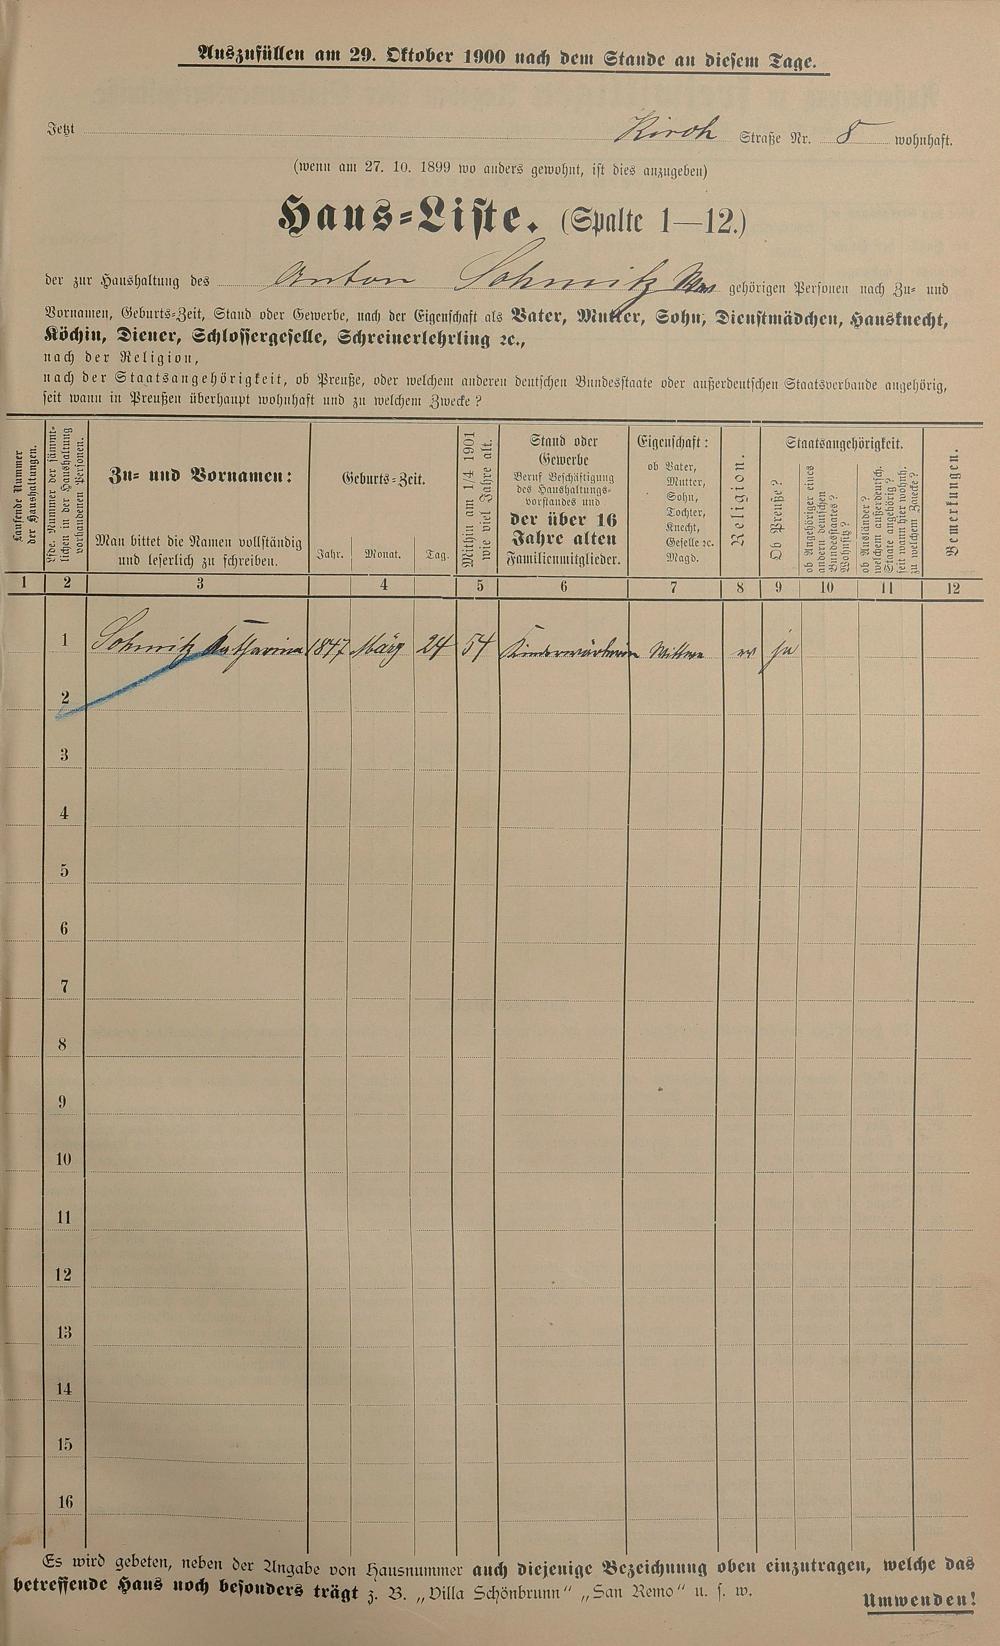 Auszufüllen am 29. Oktober 1900 nach dem Stande an diesem Tage.
Jetzt Kirch Straße Nr. 8 wohnhaft.
(wenn am 27. 10. 1899 wo anders gewohnt, ist dies anzugeben)
Haus-Liste. (Spalte 1—12.)
der zur Haushaltung des Anton Schmitz Wwe gehörigen Personen nach Zu- und
Vornamen, Geburts-Zeit, Stand oder Gewerbe, nach der Eigenschaft als Vater, Mutter, Sohn, Dienstmädchen, Hausknecht,
Köchin, Diener, Schlossergeselle, Schreinerlehrling ꝛc.,
nach der Religion,
nach der Staatsangehörigkeit, ob Preuße, oder welchem anderen deutschen Bundesstaate oder außerdeutschen Staatsverbande angehörig,
seit wann in Preußen überhaupt wohnhaft und zu welchem Zwecke?
Laufende Nummer
der Haushaltungen.
Lfde. Nummer der sämmt-
lichen in der Haushaltung
vorhandenen Personen.
Zu- und Vornamen:
Man bittet die Namen vollständig
und leserlich zu schreiben.
Geburts-Zeit.
Jahr. Monat. Tag.
Mithin am 1/4 1901
wie viel Jahre alt.
Stand oder
Gewerbe
Beruf Beschäftigung
des Haushaltungs-
vorstandes und
der über 16
Jahre alten
Familienmitglieder.
Eigenschaft:
ob Vater,
Mutter,
Sohn,
Tochter,
Knecht,
Geselle ꝛc.
Magd.
Religion.
Staatsangehörigkeit.
Ob Preuße?
ob Angehöriger eines
andern deutschen
Bundesstaates?
Wohnsitz?
ob Ausländer?
welchem außerdeutsch.
Staate angehörig?
seit wann hier wohnh.
zu welchem Zwecke?
Bemerkungen.
1 2 3 4 5 6 7 8 9 10 11 12
1 Schmitz Katharina 1847 März 24 54 Kinderwärterin Wittwe ev ja
2
3
4
5
6
7
8
9
10
11
12
13
14
15
16
Es wird gebeten, neben der Angabe von Hausnummer auch diejenige Bezeichnung oben einzutragen, welche das
betreffende Haus noch besonders trägt z. B. „Villa Schönbrunn" „San Remo" u. s. w.
Umwenden!